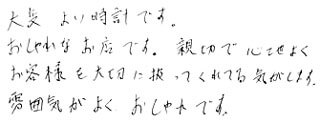 大変 よい時計です。
おしゃれなお店です。親切で心地よく
お客様を大切に扱ってくれてる気がします。
雰囲気がよく おしゃれです。